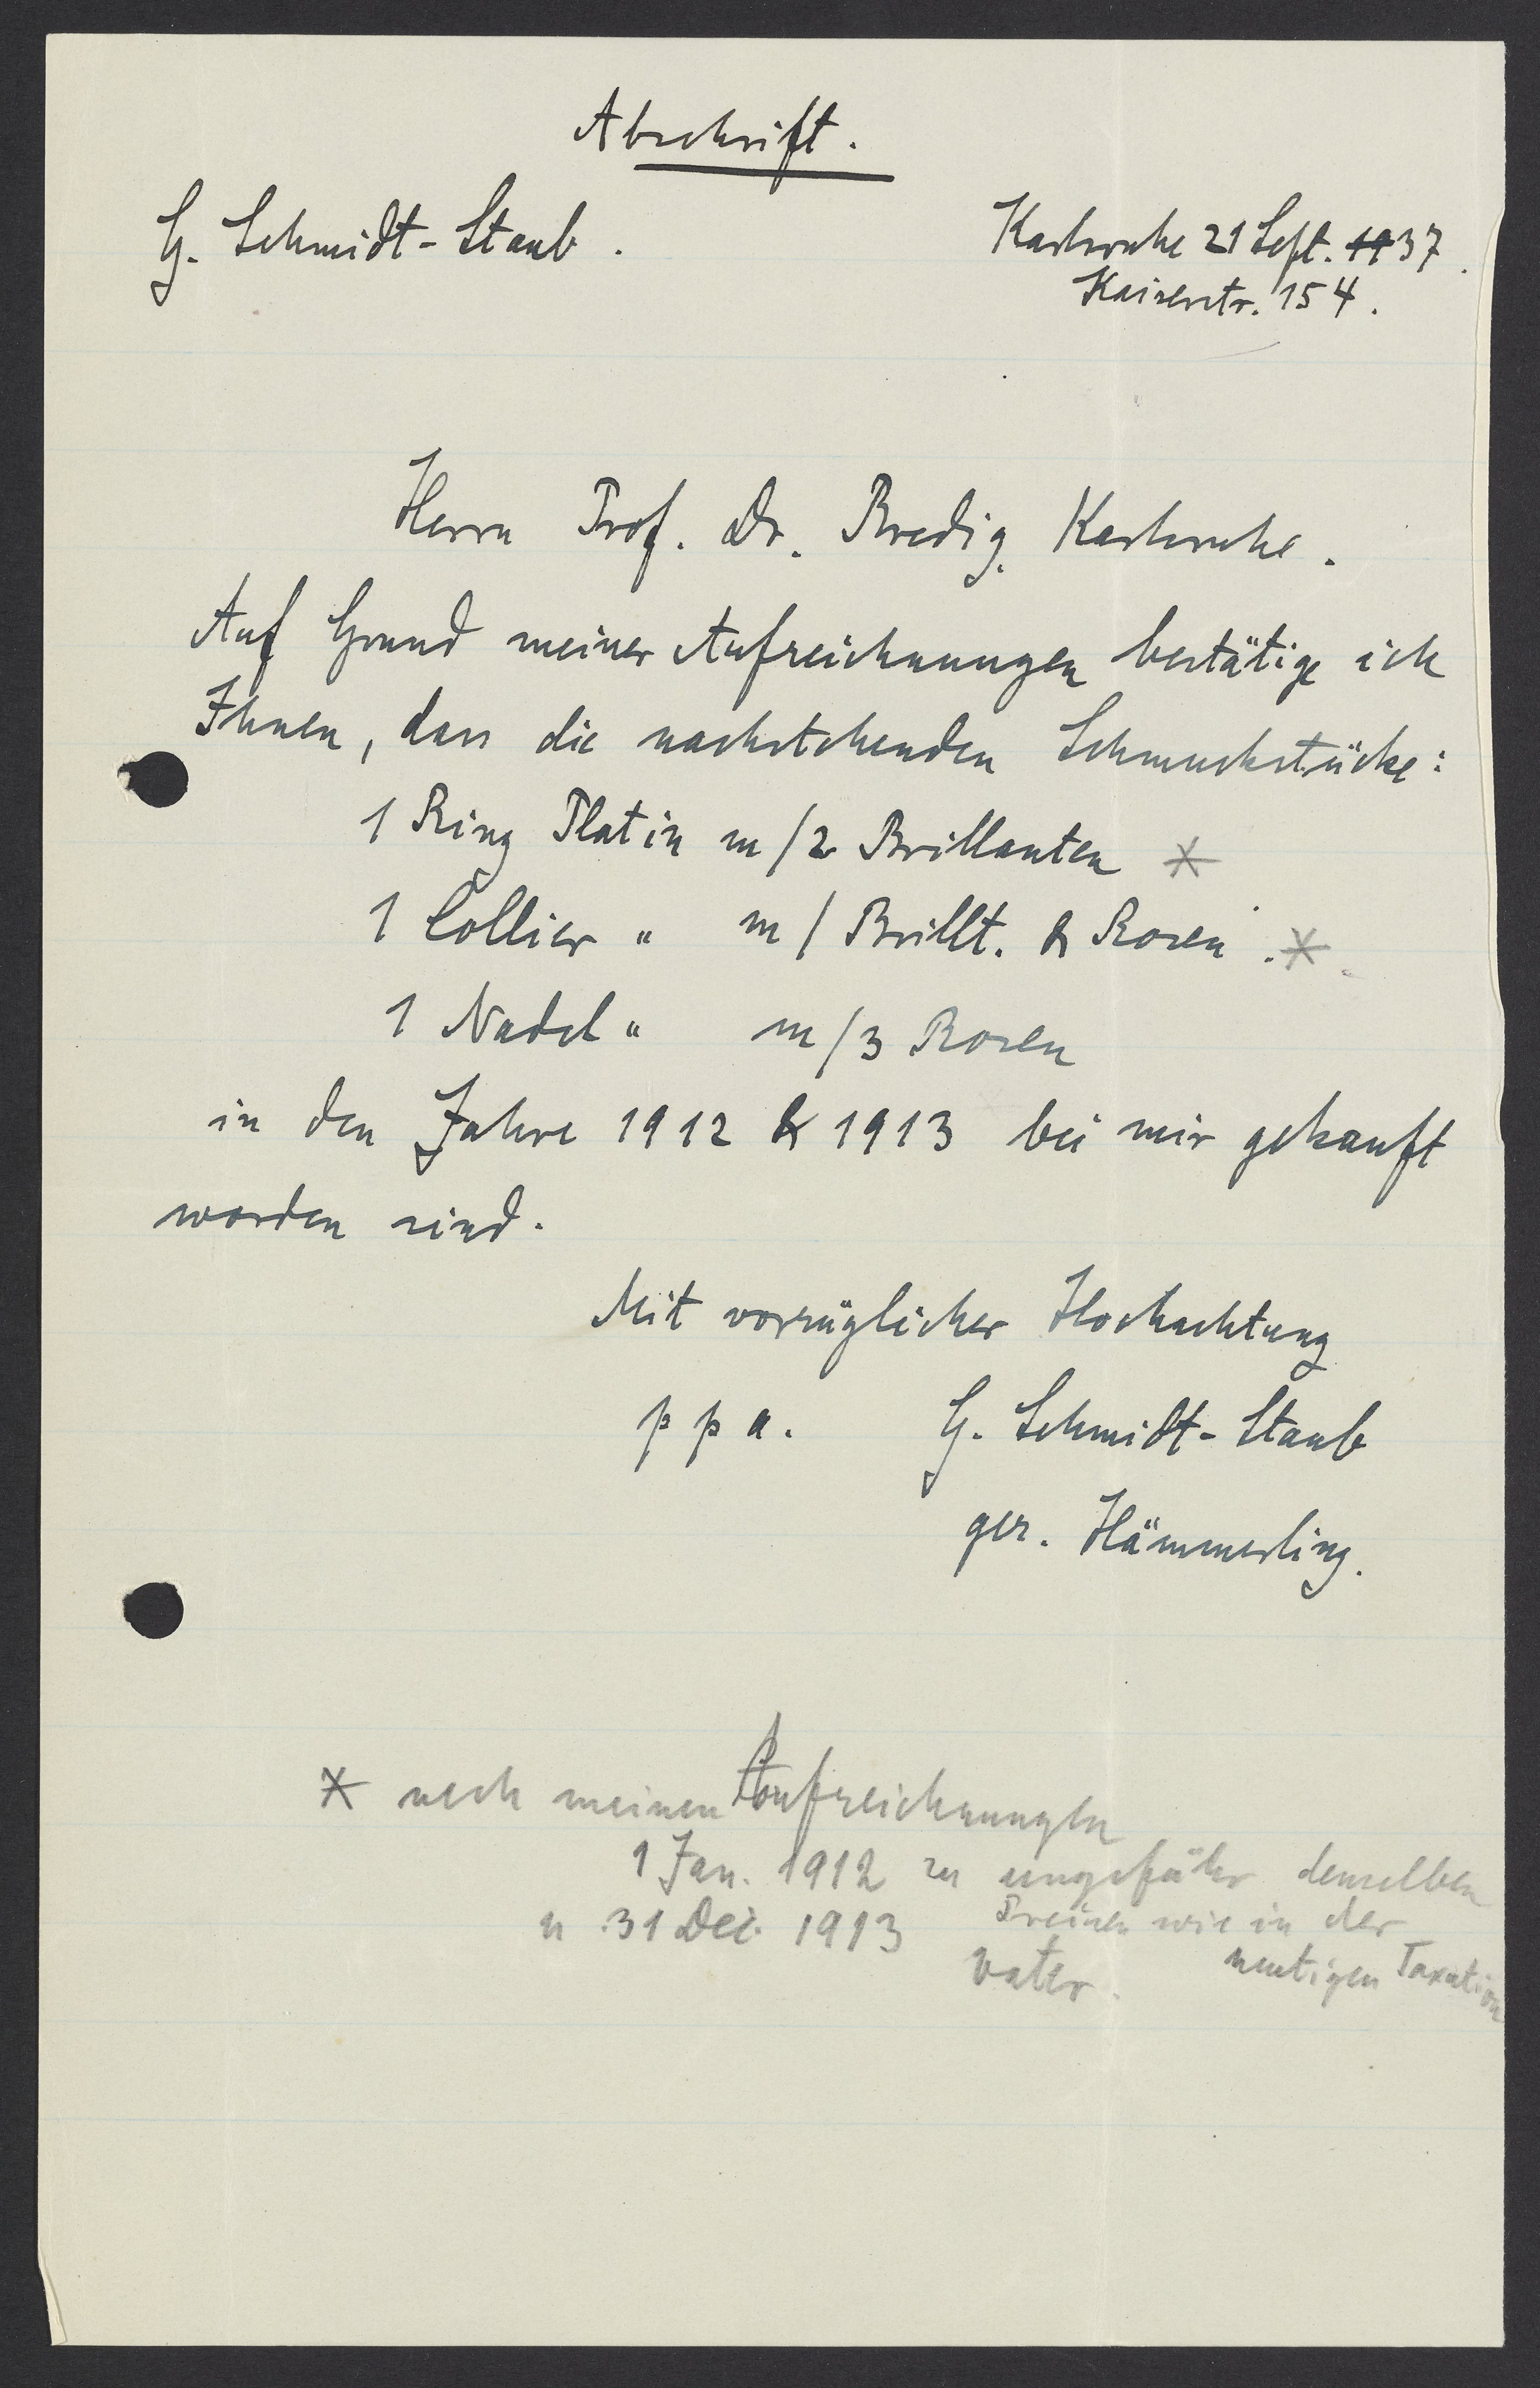 Abschrift.
G. Schmidt-Staub.
Karlsruhe 21 Sept. 37.
Kaiserstr. 154.
Herrn Prof. Dr. Bredig. Karlsruhe.
Auf Grund meiner Aufzeichnungen bestätige ich
Ihnen, dass die nachstehenden Schmuckstücke:
1 Ring Platin m/2 Brillanten *
1 Collier " m/ Brillt. & Rosen. *
1 Nadel " m/3 Rosen
in den Jahre 1912 & 1913 bei mir gekauft
worden sind.
Mit vorzüglicher Hochachtung
p p a. G. Schmidt-Staub
gez. Hämmerling.
* nach meinen Aufzeichnungen
1 Jan. 1912 zu ungefähr demselben
u 31 Dez. 1913 Preisen wie in der
heutigen Taxation
Vater.